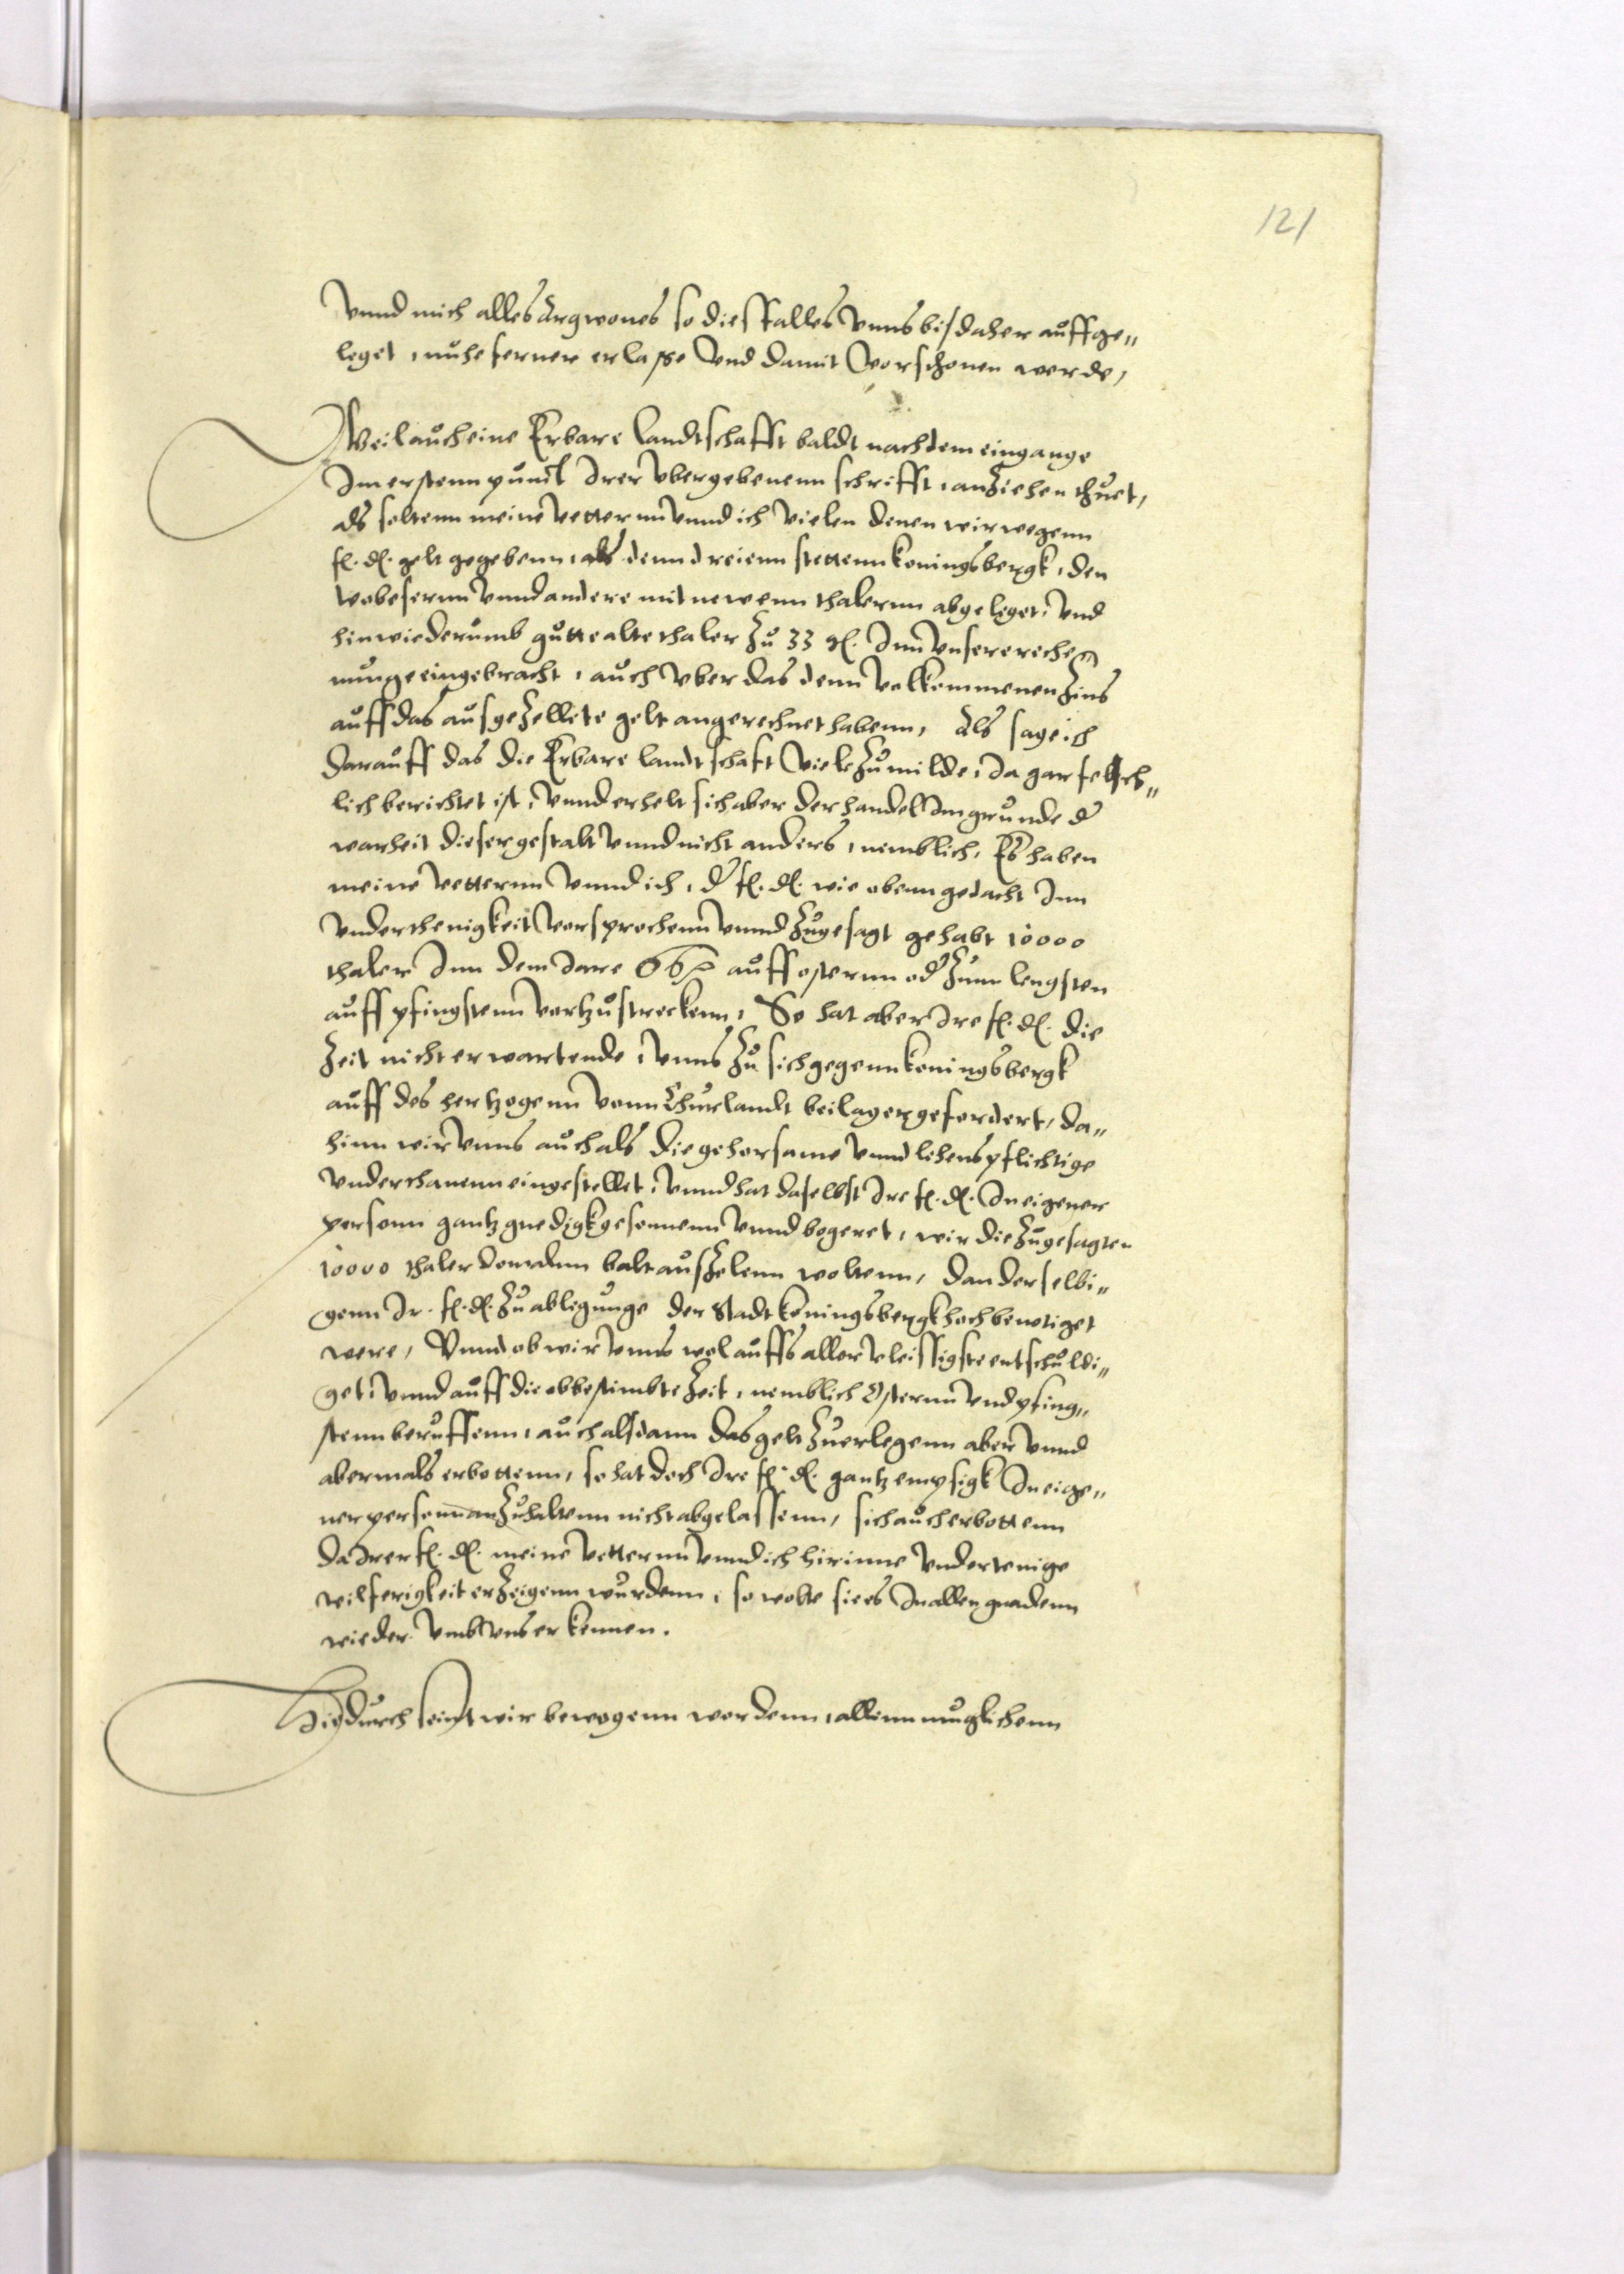 121
Vnnd mich alles Argwones so dies Falles Vnns bis daher auffge„
leget, nuhe ferner erlasse Vnd damit Vorschonen werde,
Weil auch eine Erbare Landtschafft baldt nach dem eingange
Im erstenn punct Irer Vbergebenenn schrifft, anziehen thuet,
als soltenn meine Vetternn Vnnd ich Vielen denen wir wegenn
f. d. gelt gegebenn, als denn dreienn stettenn Koningsbergk, den
Wobesernn Vnnd andere mit newenn thalernn abgeleget, Vnd
hinwiederumb gutte alte thaler zu 33 gl. Inn Vnsere rechen
nunge eingebracht, auch Vber das denn Volkommenen Zins
auff das ausgezellete gelt angerechnet habenn, Als sage ich
darauff das die Erbare landtschaft Viele zu milde, Ja gar felsch„
lich berichtet ist, Vnnd erhelt sich aber der handel Im grunde d
warheit dieser gestalt Vnnd nicht anders, nemblich, Es haben
meine Vetternn Vnnd ich, d f. d. wie obenn gedacht Inn
Vnderthenigkeit Vorsprochenn Vnnd zugesagt gehabt 10000
thaler Inn dem Jare 66 auff osternn od zum lengsten
auff pfingstenn Vortzustreckenn, So hat aber Ire f. d. die
Zeit nicht erwartende, Vnns zu sich gegenn Koningsbergk
auff des hertzogenn Vonn Churlandt beilager gefordert, da„
hinn wir Vnns auch als die gehorsame Vnnd lehenspflichtige
Vnderthanenn eingestellet, Vnnd hat daselbst Ire f. d. In eigener
personn gantz gnedigk gesonnenn Vnnd begeret, wir die zugesagten
10000 thaler balt auszelenn woltenn, dan derselbi„
genn Ir. f. d. zu ablegunge der Stadt Koningsbergk hoch benotiget
were, Vnnd ob wir Vnns wol auffs aller Vleissigste entschuldi„
get, Vnnd auff die obbestimbte Zeit, nemblich Osternn Vnd pfing„
stenn beruffenn, auch alsdann das gelt zuerlegenn aber Vnnd
abermals erbottenn, so hat doch Ire f. d. gantz empsigk In eige„
ner personn anzuhaltenn nicht abgelassenn, sich auch erbottenn
da Irer f. d. meine Vetternn Vnnd ich hirinne Vndertenige
wilferigkeit erzeigenn wurdenn, so wolte sie es In allen gnadenn
wieder Vmb Vns erkennen.
Hiedurch seint wir bewogenn wordenn, allenn muglichenn